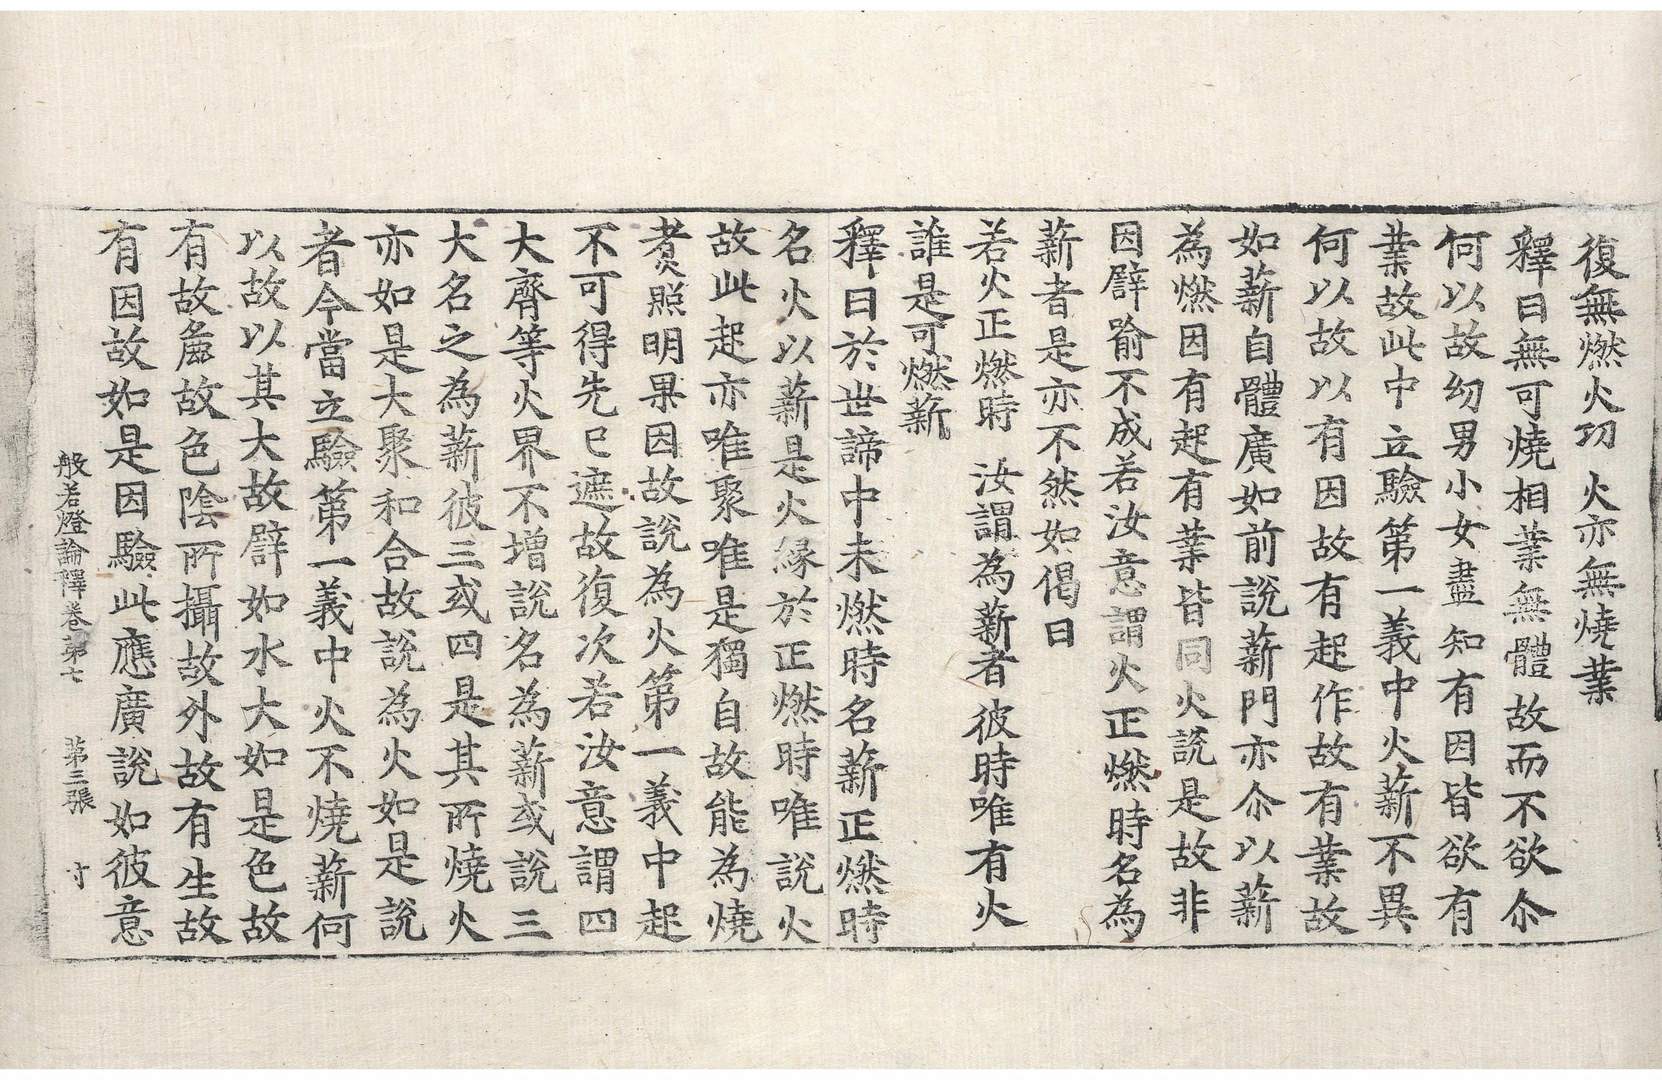 復無燃火功　火亦無燒業
釋曰無可燒相業無體故而不欲尒
何以故幼男小女盡知有因皆欲有
業故此中立驗第一義中火薪不異
何以故以有因故有起作故有業故
如薪自體廣如前說薪門亦尒以薪
為燃因有起有業皆同火說是故非
因譬喻不成若汝意謂火正燃時名為
薪者是亦不然如偈曰
若火正燃時　汝謂為薪者彼時唯有火
誰是可燃薪
釋曰於世諦中未燃時名薪正燃時
名火以薪是火緣於正燃時唯說火
故此起亦唯聚唯是獨自故能為燒
煑照明果因故說為火第一義中起
不可得先已遮故復次若汝意謂四
大齊等火界不增說名為薪或說三
大名之為薪彼三或四是其所燒火
亦如是大聚和合故說為火如是說
者今當立驗第一義中火不燒薪何
以故以其大故譬如水大如是色故
有故麁故色陰所攝故外故有生故
有因故如是因驗此應廣說如彼意
般若燈論釋卷第七　第三張　寸